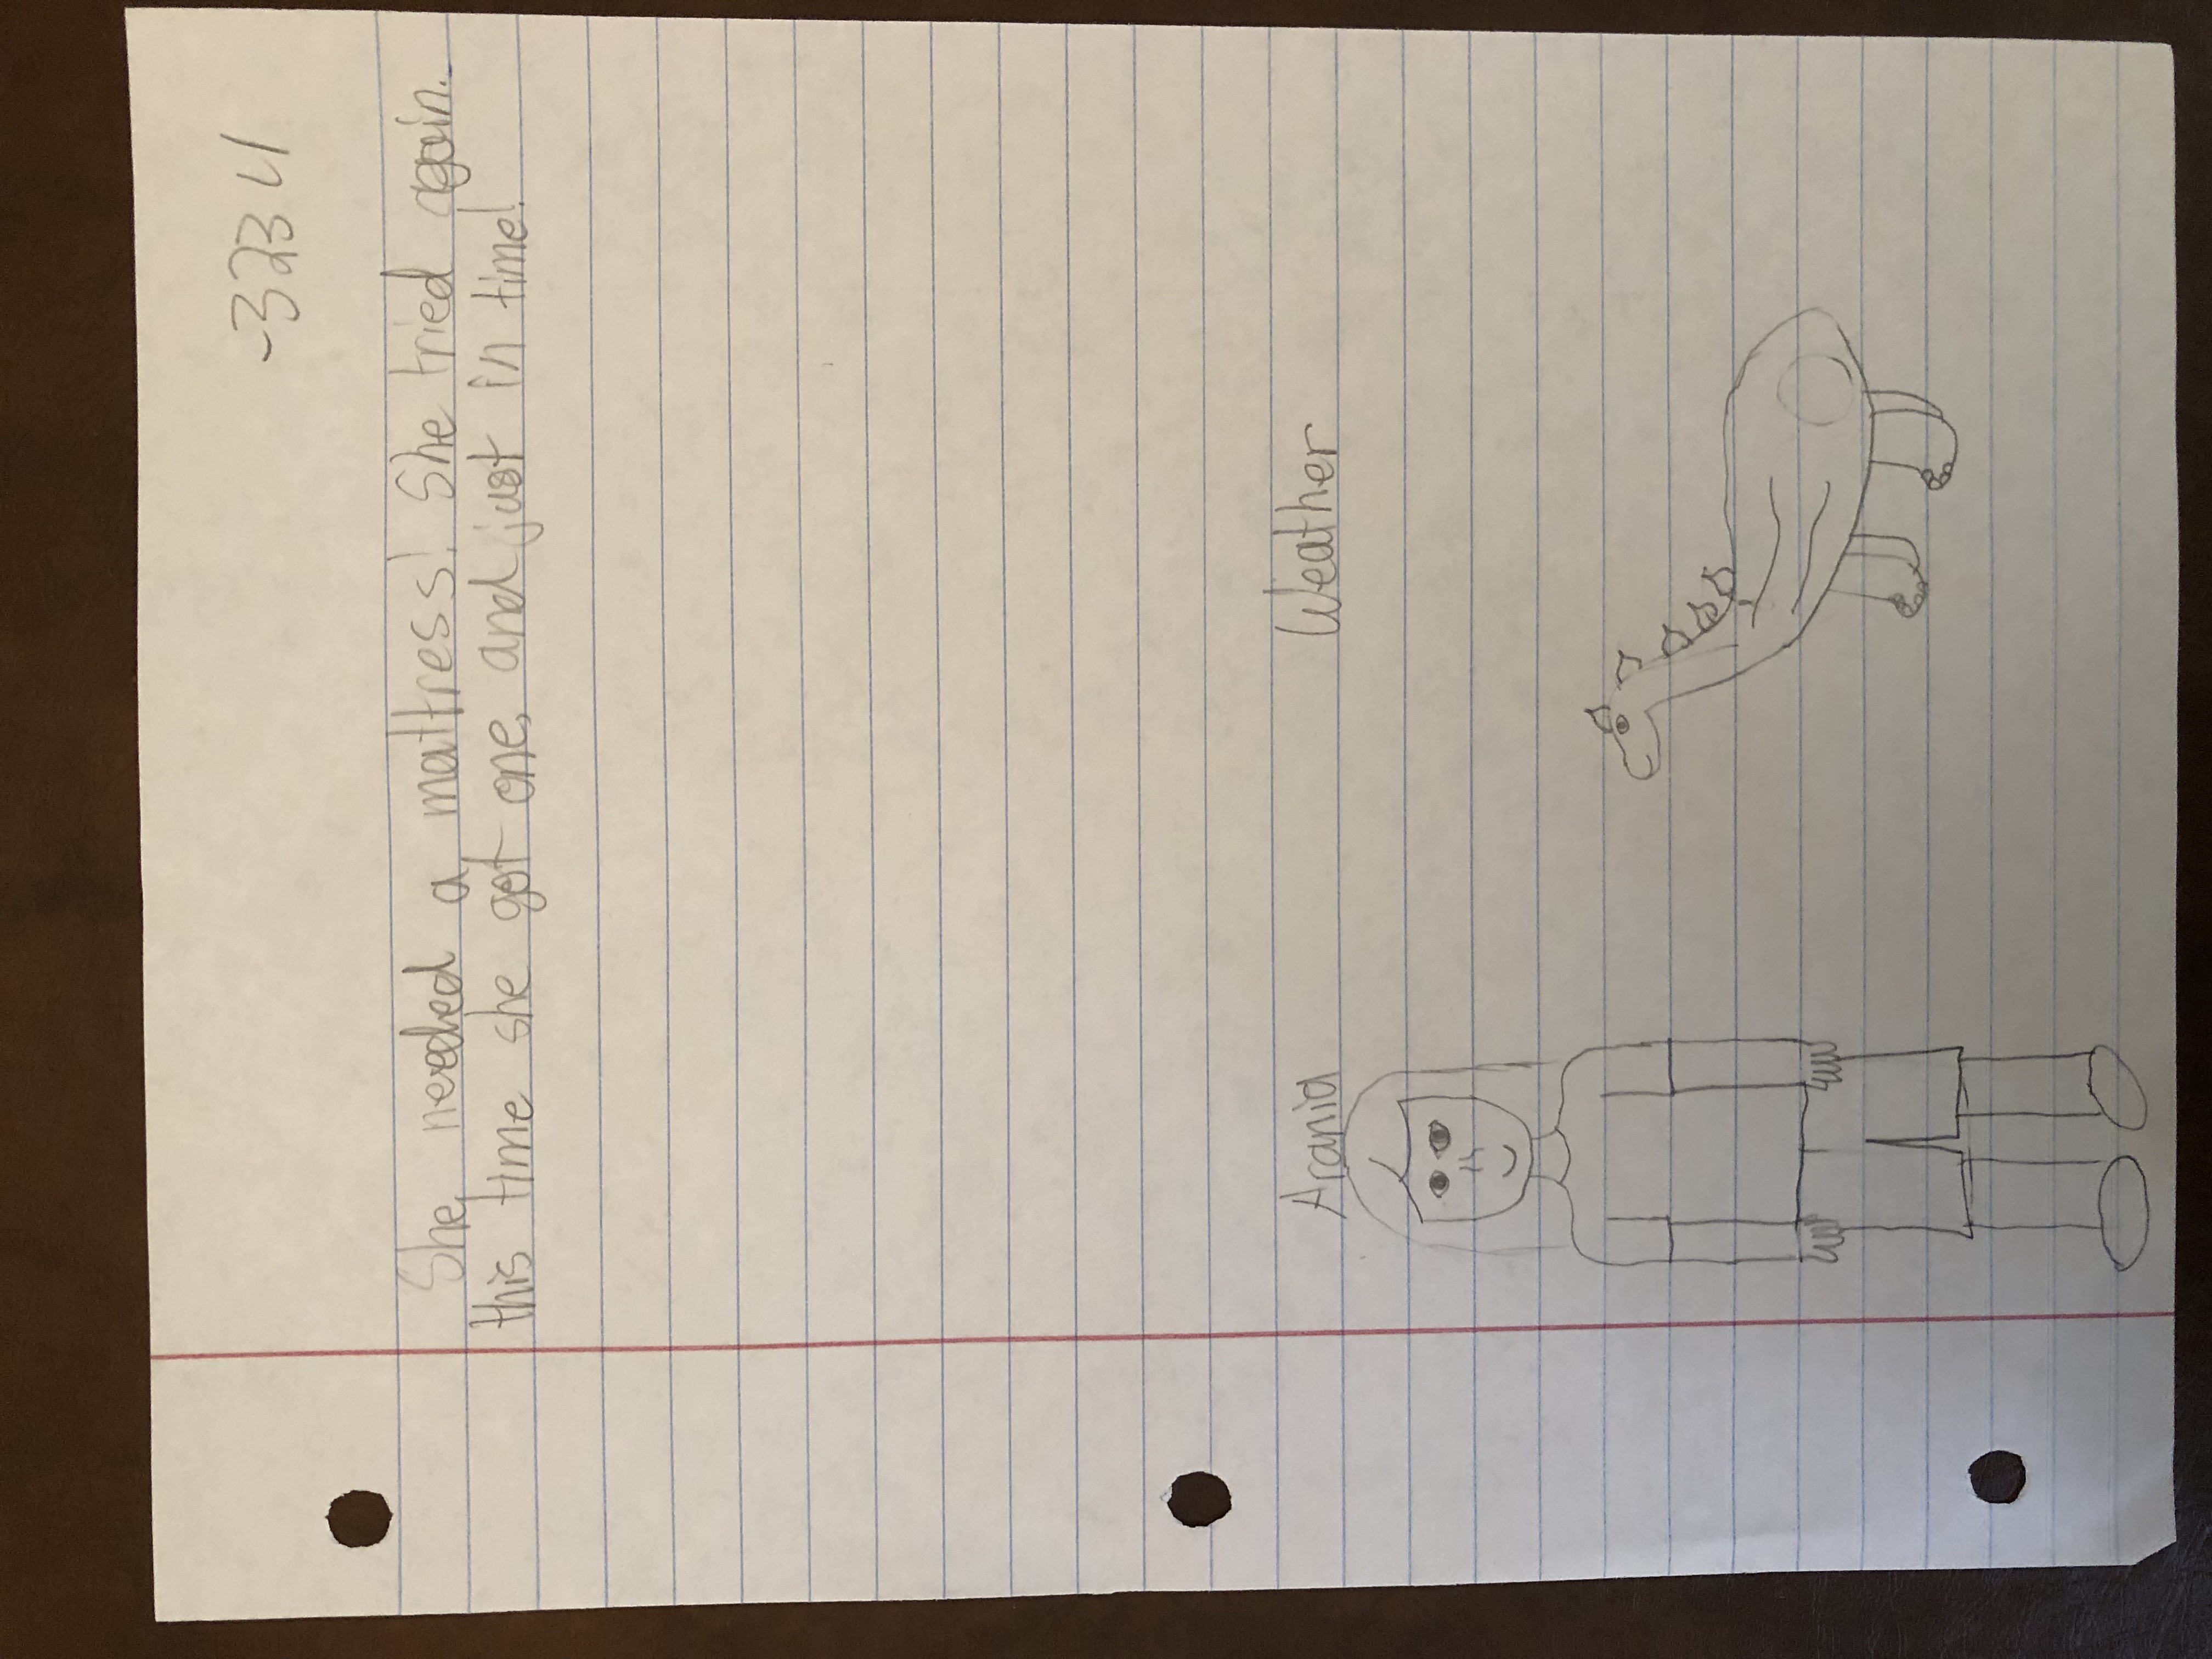 -3234
She needed a mattress! She tried again.
this time she got one, and just in time!
Arania
Weather